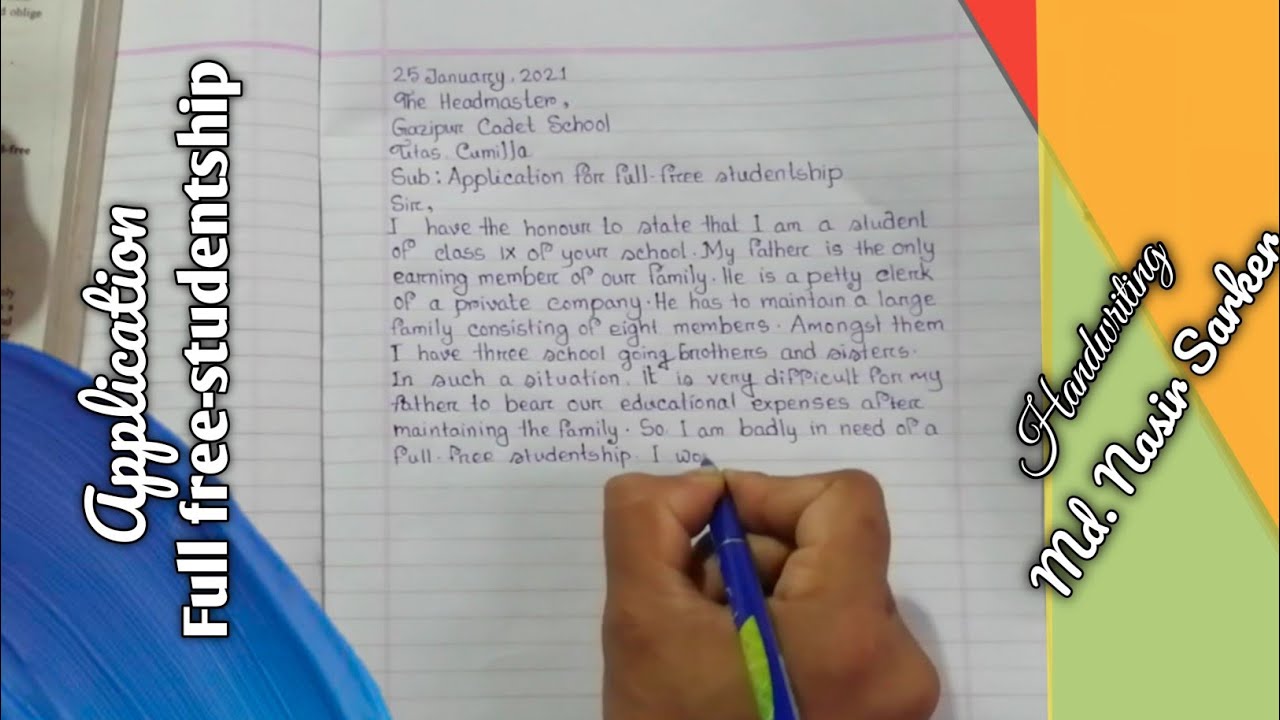 d oblige
-free
Application
Full free-studentship
25 January, 2021
The Headmaster,
Gazipur Cadet School
Titas Cumilla
Sub: Application for full-free studentship
Sir,
I have the honour to state that I am a student
of class IX of your school. My father is the only
earning member of our family. He is a petty clerk
of a private company. He has to maintain a large
family consisting of eight members. Amongst them
I have three school going brothers and sisters.
In such a situation. It is very difficult for my
father to bear our educational expenses after
maintaining the family. So I am badly in need of a
full-free studentship. I wo
Handwriting
Md. Nasir Sarker